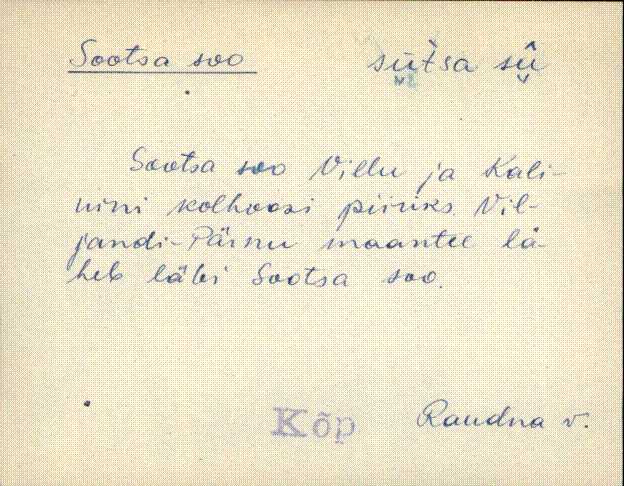 Sootsa soo sù̬tsa sû̬
Sootsa soo Villu ja Kali-
nini kolhoosi piiriks. Vil-
jandi-Pärnu maantee lä-
heb läbi Sootsa soo.
Kõp Raudna v.